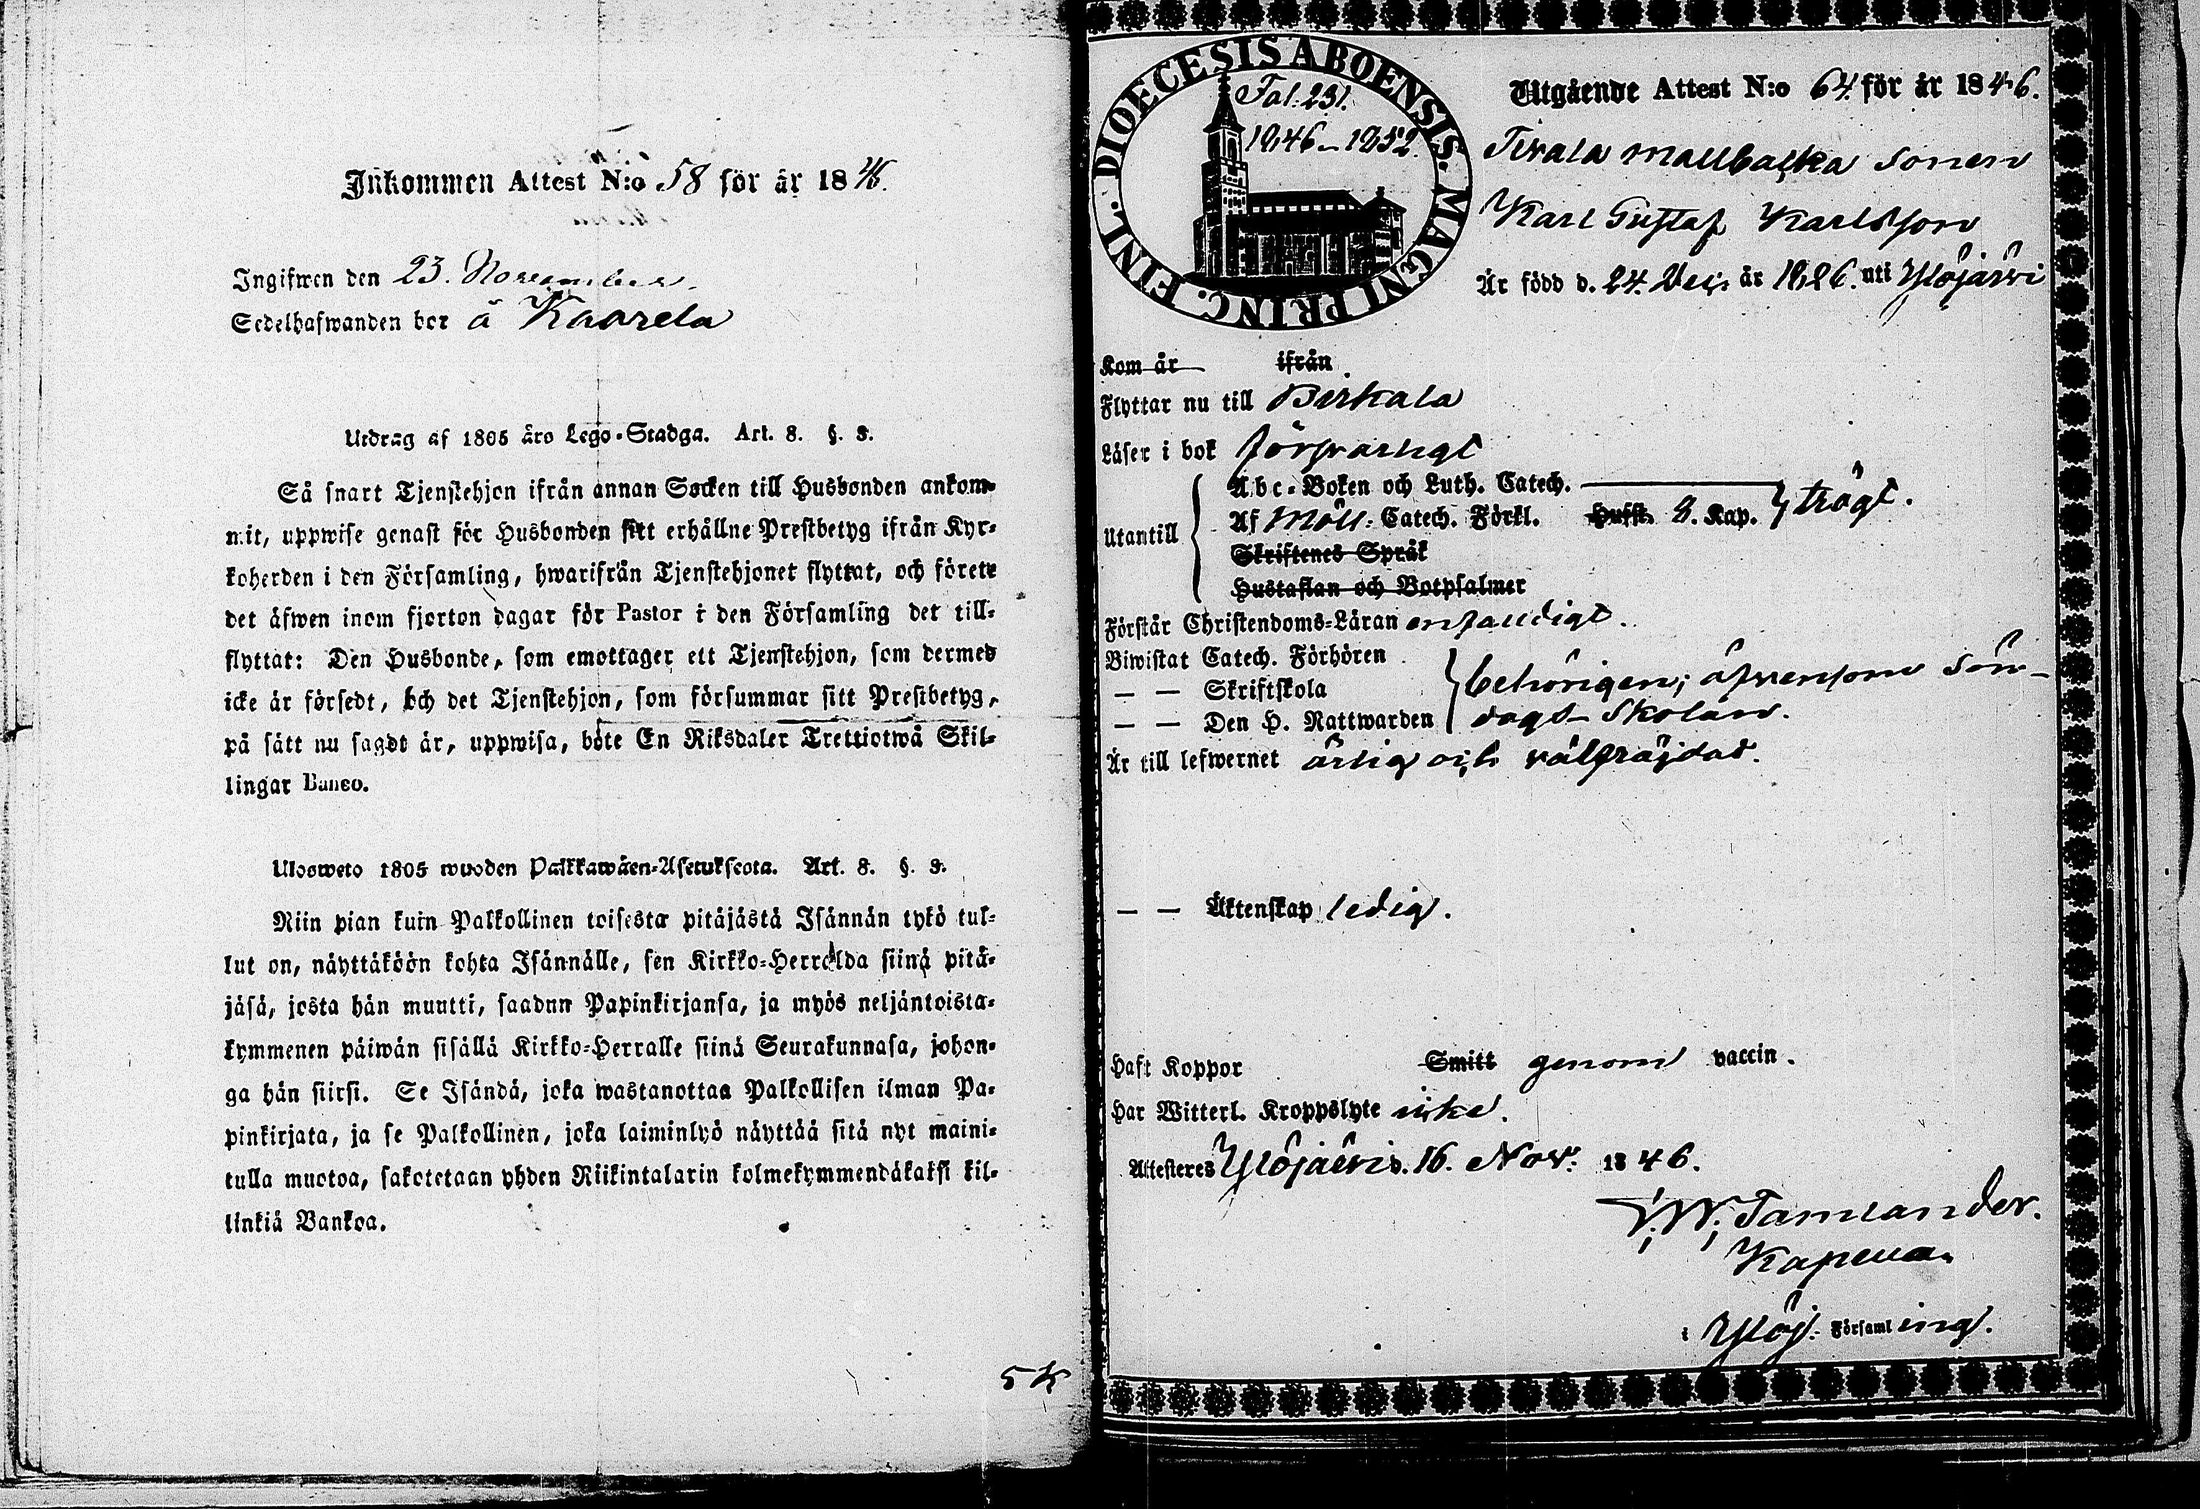 Inkommen Attest N:o 58 för år 1846.
Ingifwen den 23. November.
Sedelhafwanden bor å Kaarela
Utdrag af 1805 års Lego-Stadga. Art. 8. §. 3.
Så snart Tjenstehjon ifrån annan Socken till Husbonden ankom-
mit, uppwise genast för Husbonden sitt erhållne Prestbetyg ifrån Kyr-
koherden i den Församling, hwarifrån Tjenstehjonet flyttat, och förete
det äfwen inom fjorton dagar för Pastor i den Församling det till-
flyttat: Den Husbonde, som emottager ett Tjenstehjon, som dermed
icke är försedt, och det Tjenstehjon, som försummar sitt Prestbetyg,
på sätt nu sagdt är, uppwisa, böte En Riksdaler Trettiotwå Skil-
lingar Banco.
Ulosweto 1805 wuoden Palkkawäen-Asetuksesta. Art. 8. §. 3.
Niin pian kuin Palkollinen toisesta pitäjästä Isännän tykö tul-
lut on, näyttäköön kohta Isännälle, sen Kirkko-Herralda siinä pitä-
jäsä, josta hän muutti, saadun Papinkirjansa, ja myös neljäntoista-
kymmenen päiwän sisällä Kirkko-Herralle siinä Seurakunnasa, johon-
ga hän siirsi. Se Isändä, joka wastanottaa Palkollisen ilman Pa-
pinkirjata, ja se Palkollinen, joka laiminlyö näyttää sitä nyt maini-
tulla muotoa, sakotetaan yhden Riikintalarin kolmekymmendäkaksi kil-
linkiä Bankoa.
DIOECESIS ABOENSIS. MAGNI PRINC. FINL.
Fol: 231.
1846-1852.
Utgående Attest N:o 64. för år 1846.
mallbacka sonen
Karl Gustaf Karlsson
Är född d. 24. Dec. år 1826. uti Ylöjärvi
Kom år ifrån
Flyttar nu till Birkala
Läser i bok försvarligt
Utantill
Abc-Boken och Luth. Catech.
Af Möll: Catech. Förkl. Hufst. 8. Kap. trögt.
Skriftenes Språk
Hustaflan och Botpsalmer
Förstår Christendoms-Läran enfaldigt.
Biwistat Catech. Förhören
— — Skriftskola
— — Den H. Nattwarden
behörigen; äfvensom sön-
dags-Skolan.
Är till lefwernet ärlig och välfräjdad.
— — Äktenskap ledig.
Haft Koppor Smitt genom vaccin.
Har Witterl. Kroppslyte icke.
Attesteres Ylöjärvi d. 16. Nov. 1846.
Tamlander.
Kapellan
i Ylöj: Församling.